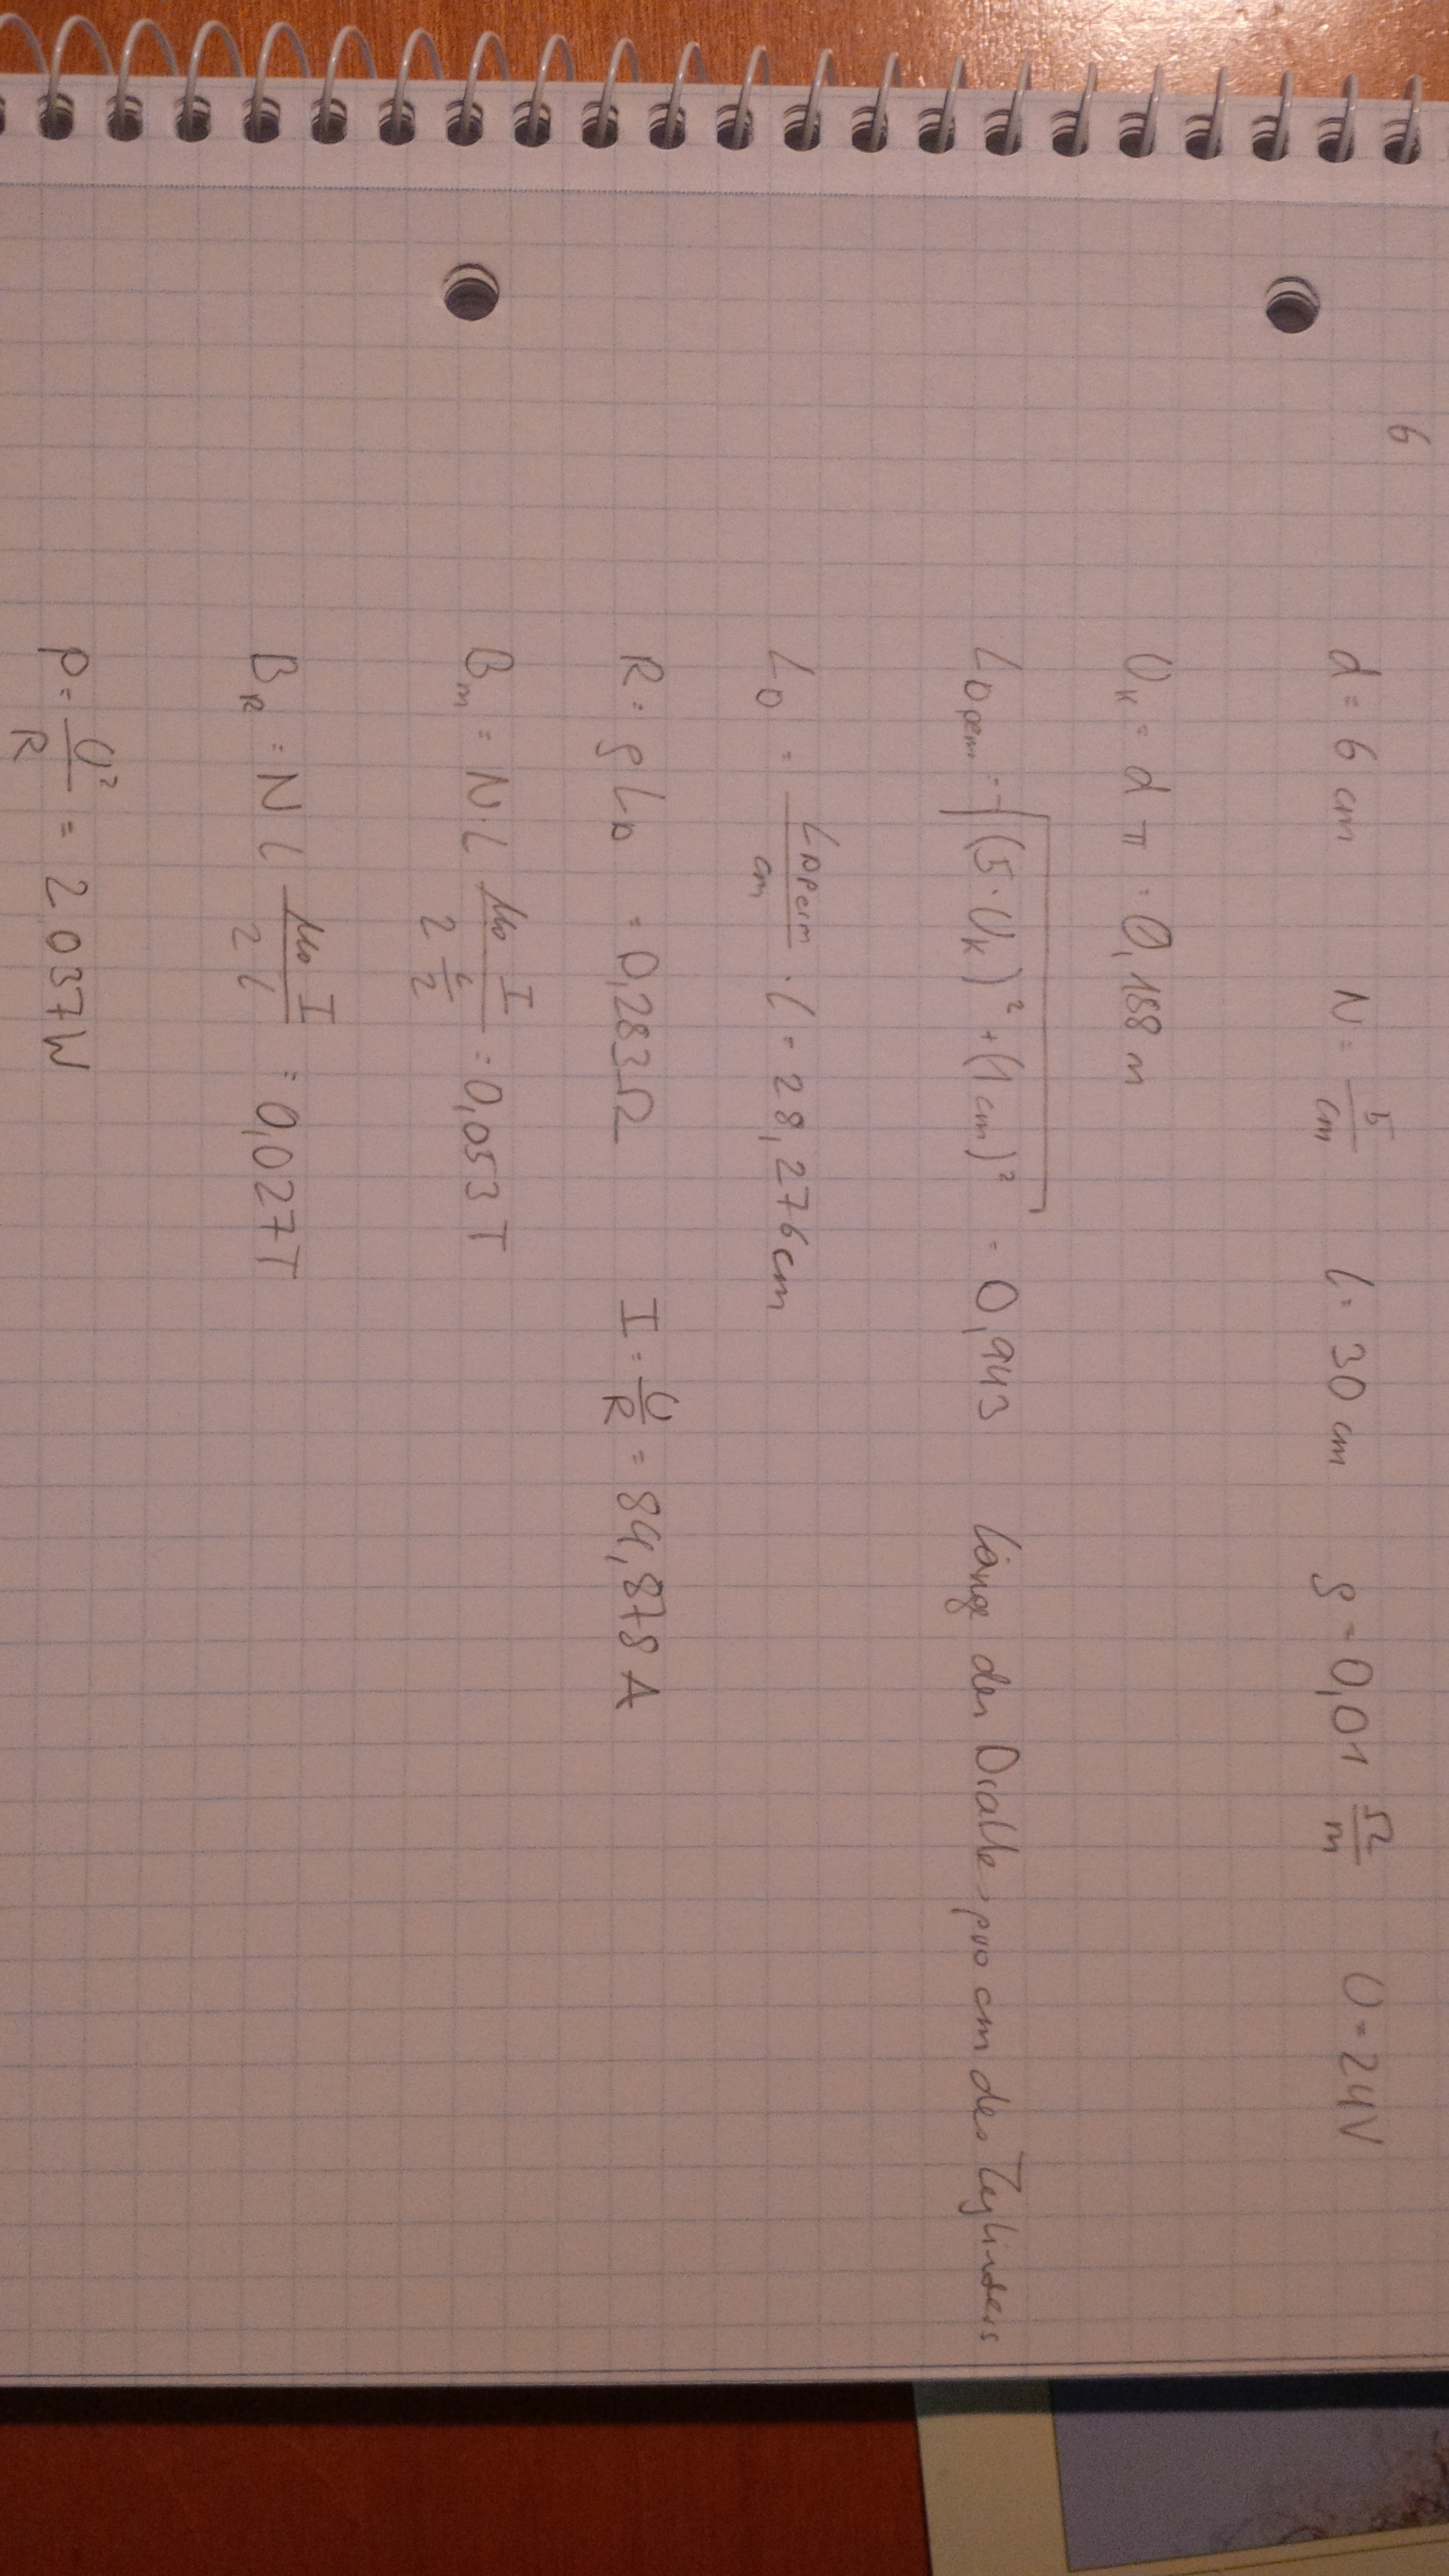 6
d = 6 cm N = 5/cm l = 30 cm ρ = 0,01 Ω/m U = 24V
U_K = d π = 0,188 m
L_Dpcm = √((5·U_K)² + (1 cm)²) = 0,943 Länge des Drahtes pro cm des Zylinders
L_D = L_Dpcm/cm · l = 28,276 cm
R = ρ L_D = 0,283 Ω I = U/R = 84,878 A
B_m = N·l μ₀ I / (2 l/2) = 0,053 T
B_R = N l μ₀ I / (2 l) = 0,027 T
P = U²/R = 2 037 W